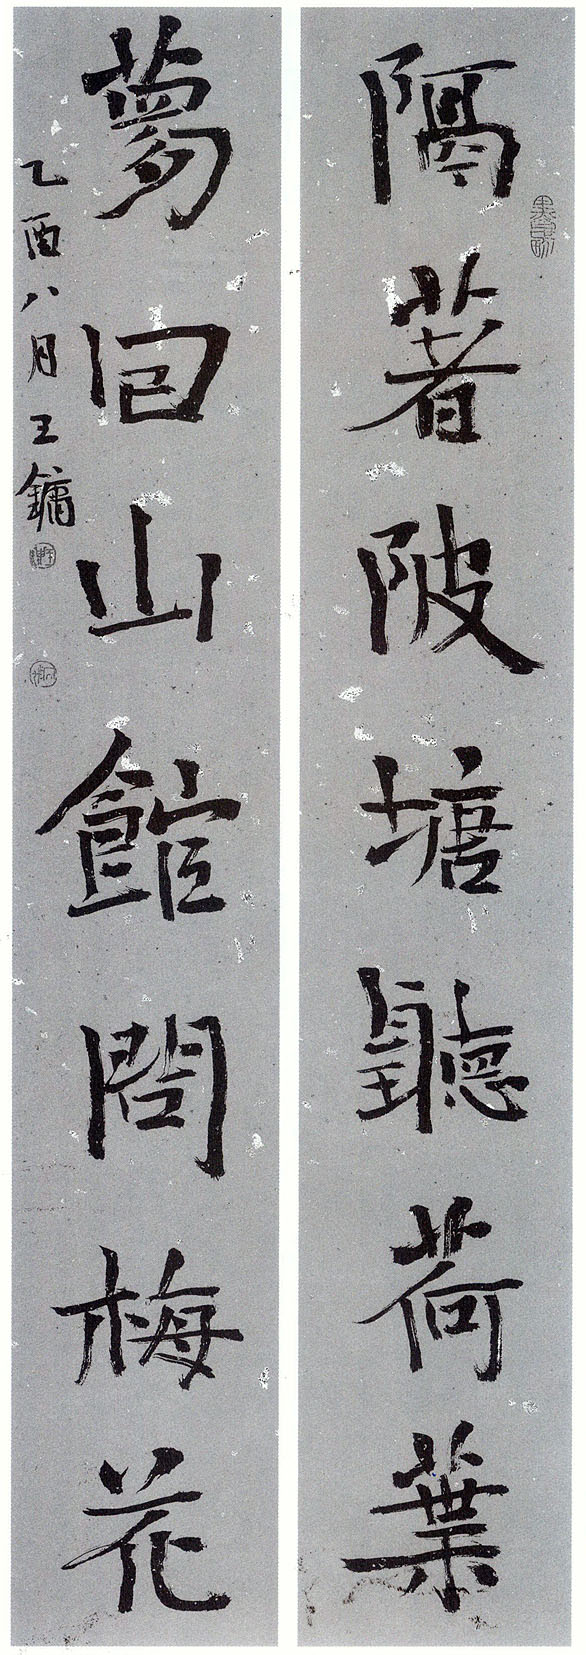 隔著陂塘聽荷葉
夢回山館問梅花
乙酉八月王鏞